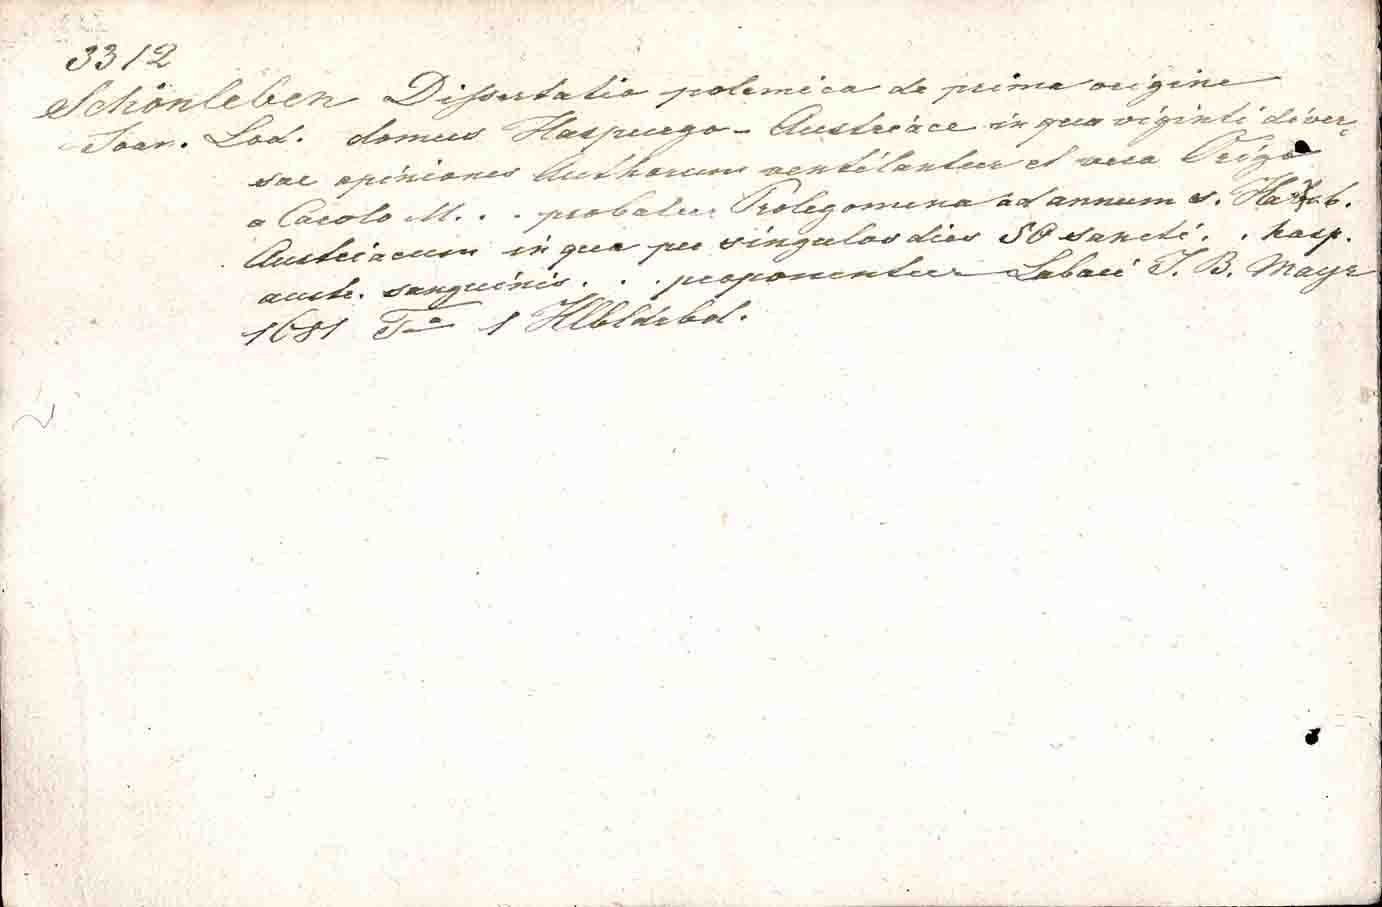 3312
Schönleben Dissertatio polemica de prima origine
Joan. Lod. domus Haspurgo - Austriace in qua viginti diver-
sae opiniones Authorum ventilantur et vera Origo
a Carolo M. . . probatur Prolegomena ad annum s. Hasb.
Austriacum in quo per singulos dies 50 sancti. . hasp.
austr. sanguinis. . . proponentur Labaci J. B. Mayr
1681 1 Hlbldrbd.